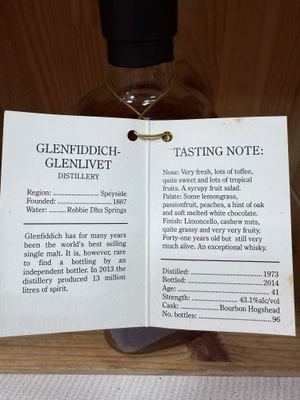 GLENFIDDICH-
GLENLIVET
DISTILLERY
Region: .................... Speyside
Founded: ........................ 1887
Water: ........ Robbie Dhu Springs
Glenfiddich has for many years
been the world's best selling
single malt. It is, however, rare
to find a bottling by an
independent bottler. In 2013 the
distillery produced 13 million
litres of spirit.
TASTING NOTE:
Nose: Very fresh, lots of toffee,
quite sweet and lots of tropical
fruits. A syrupy fruit salad.
Palate: Some lemongrass,
passionfruit, peaches, a hint of oak
and soft melted white chocolate.
Finish: Limoncello, cashew nuts,
quite grassy and very very fruity.
Forty-one years old but still very
much alive. An exceptional whisky.
Distilled: ................................ 1973
Bottled: .................................. 2014
Age: ........................................ 41
Strength: ..................... 43.1%alc/vol
Cask: .................. Bourbon Hogshead
No. bottles: ................................ 96